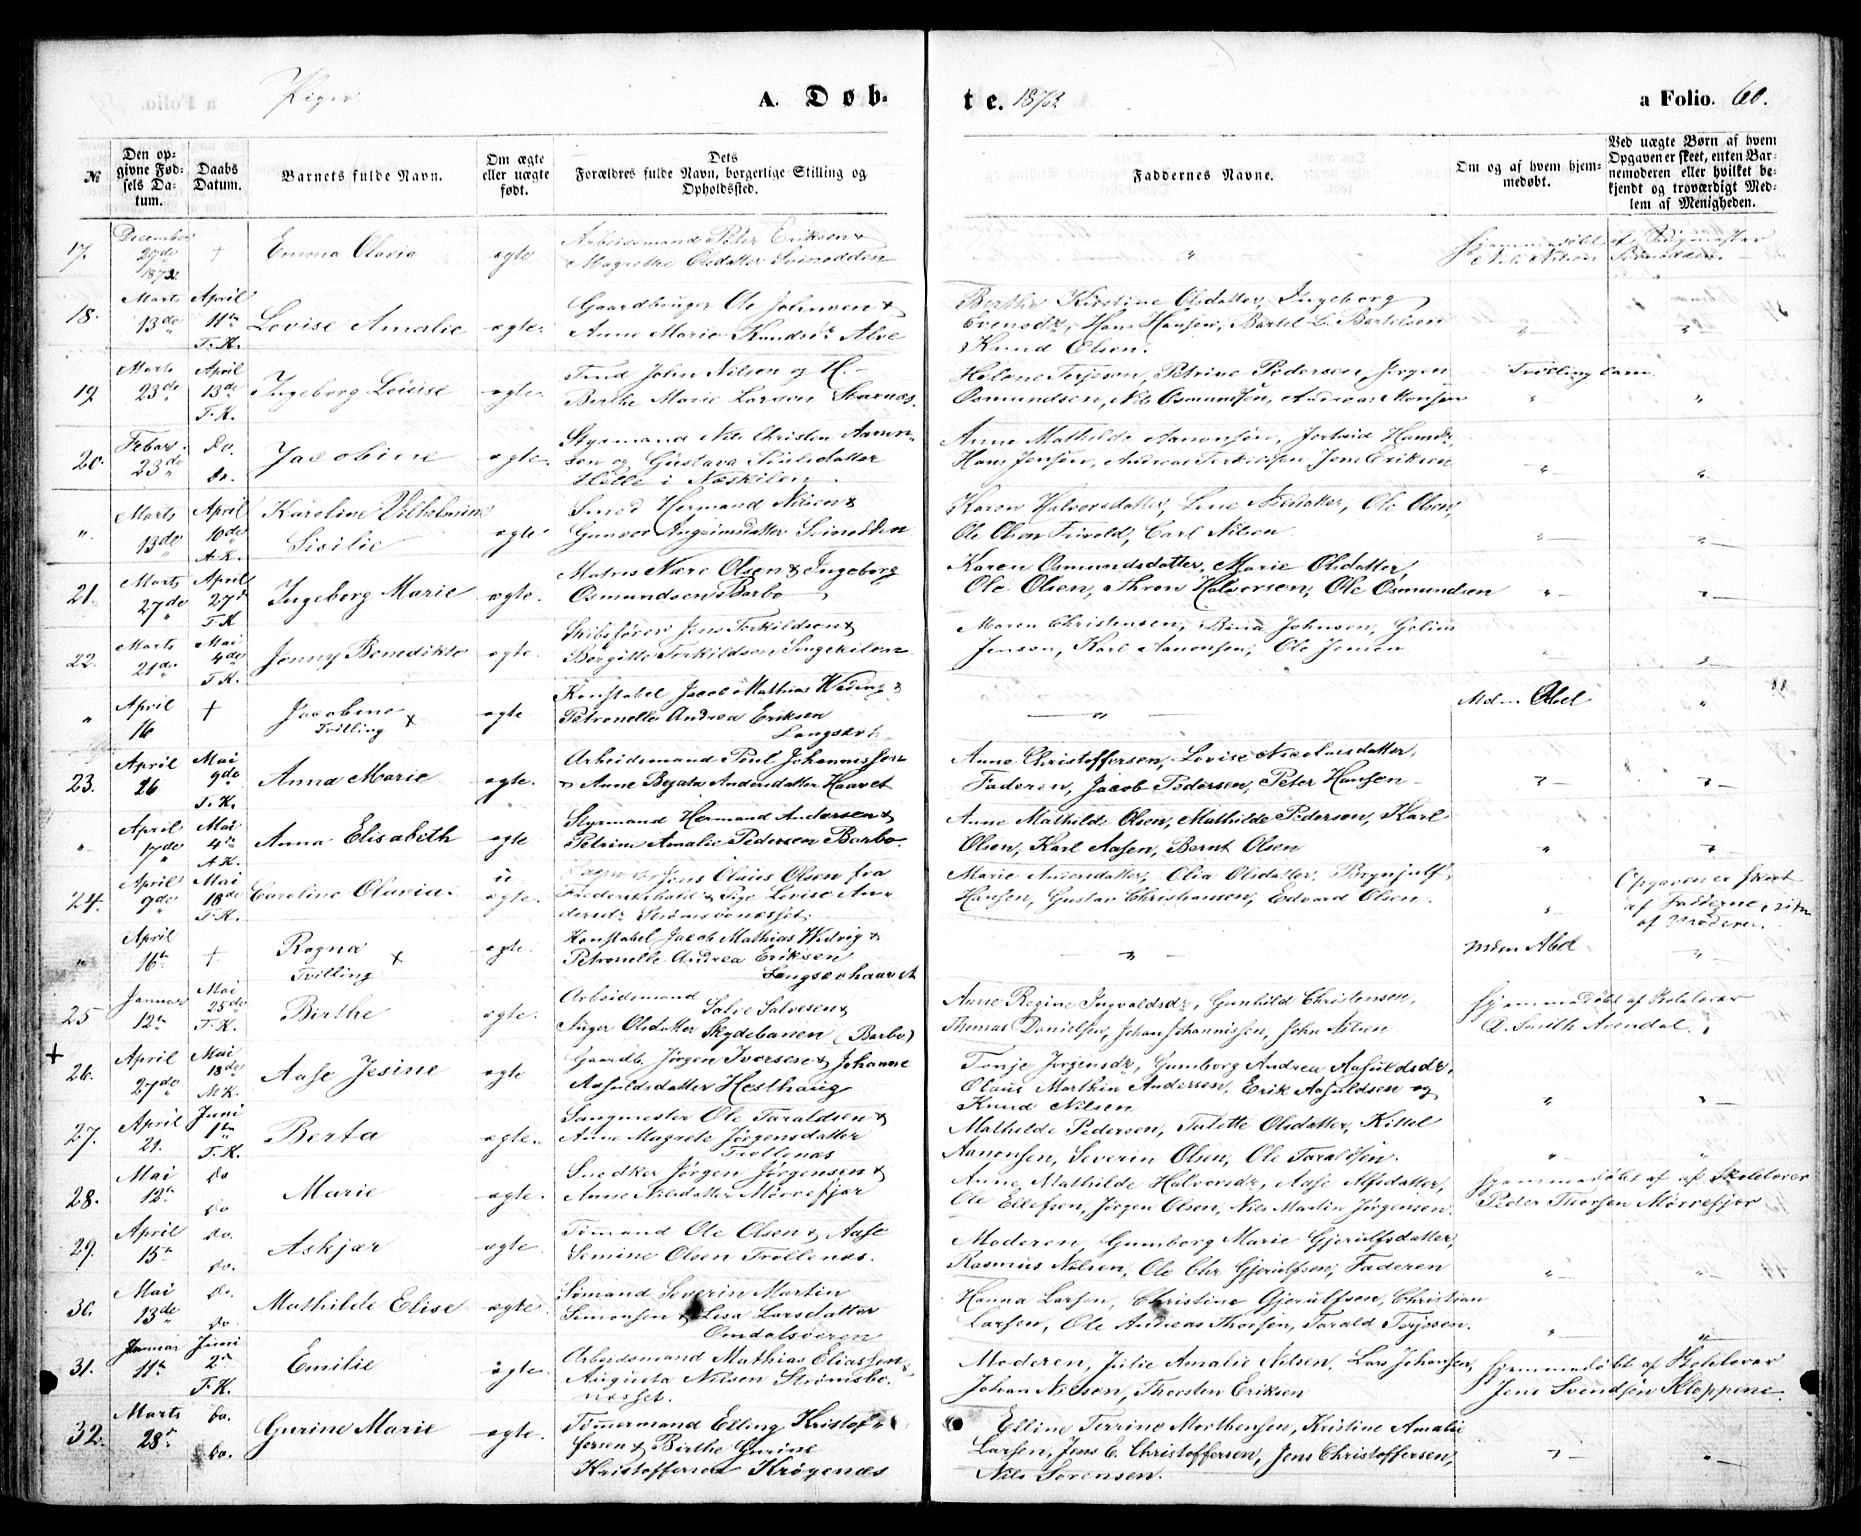 Piger
A. Døb-
te. 1873
a Folio. 60.
№
Den opgivne Fødsels Datum.
Daabs Datum.
Barnets fulde Navn.
Om ægte eller uægte født.
Dets Forældres fulde Navn, borgerlige Stilling og Opholdssted.
Faddernes Navne.
Om og af hvem hjemmedøbt.
Ved uægte Børn af hvem Opgaven er skeet, enten Barnemoderen eller hvilket bekjendt og troværdigt Medlem af Menigheden.
17. December 27de 1872 + Emma Olavia ægte
Arbeidsmand Peter Eriksen &
Magrethe Olsdatter Svinodden
"
Hjemmedøbt af Saugmester
Nils Nilsen Svinodden
18. Marts 13de April 11te T.K. Lovise Amalie ægte.
Gaardbruger Ole Johnsen &
Anne Marie Knudsdr Alve
Berthe Kirstine Olsdatter, Ingeborg
Evensdr, Hans Hansen, Bertel L. Bertelsen
Knud Olsen.
19. Marts 23de April 13de T.K. Ingeborg Lovise ægte.
John Nilsen og H.
Birthe Marie Larsen Skarnes.
Helene Terjesen, Petrine Pedersen, Jørgen
Osmundsen, Nils Osmundsen, Andreas Monsen
Tvillingbarn
20. Febar. 23de do. do. Jacobine ægte.
Styrmand Nils Christen Aanon-
sen og Gustava Poulsdatter
Helle i Næskilen.
Anne Mathilde Aanonsen, Jortrud Hansdr,
Hans Jensen, Andreas Terkildsen Jens Eriksen
" Marts 13de April 10de A.K. Karoline Vilhelmine
Sisilie ægte.
Smed Hermand Nilsen &
Gunvor Angrimsdatter Svinodden
Karen Halvorsdatter, Lene Nilsdatter, Ole Olsen,
Ole Olsen Frivold, Carl Nilsen
21. Marts 27de April 27de T.K. Ingeborg Marie ægte.
Matros Nære Olsen & Ingeborg
Osmundsen Barbo
Karen Osmundsdatter, Marie Olsdatter
Ole Olsen, Thron Halvorsen, Ole Osmundsen
22. Marts 21de Mai 4de T.K. Jenny Benedikte ægte.
Skibsfører Jens Terkildsen &
Bergitte Terkildsen Songekilen
Maren Christensen, Bina Johnsen, Golius
Jensen, Karl Aanonsen, Ole Jensen
" April 16 + Jacobine
Tvilling × ægte
Konstabel Jacob Mathias Weding &
Petronelle Andrea Eriksen
Langsæv h.
"
Mdm Abel
23. April 26 Mai 9de T.K. Anna Marie ægte.
Arbeidsmand Poul Johannissen
& Anne Begata Andersdatter Haavet
Anne Christoffersen, Lovise Nicolaisdatter,
Faderen, Jacob Pedersen, Peter Hansen
" April 17de Mai 4de A.K. Anna Elisabeth ægte
Styrmand Hermand Andersen &
Petrine Amalie Pedersen Barbo.
Anne Mathilde Olsen, Mathilde Pedersen, Karl
Olsen, Karl Aasen, Bernt Olsen
24. April 9de Mai 18de T.K. Caroline Olavia. u ægte.
Jens Claus Olsen fra
Frederikshald & Pige Lovise An-
dersdr Strømsbonesset.
Marie Andersdatter, Olia Olsdatter, Brynjulf
Hansen, Gustav Christiansen, Edvard Olsen.
Opgaven er skeet
af Fadderne, siden
af Moderen.
" April 16de + Ragna
Tvilling × ægte.
Konstabel Jacob Mathias Wedvig &
Petronelle Andrea Eriksen
Langsævhaavet
"
Mdm Abel
25 Januar 12te Mai 25de T.K. Birthe ægte.
Arbeidsmand Salve Salvesen &
Inger Olsdatter Skydebanen (Barbo)
Anne Regine Ingvaldsdr, Gunhild Christensen,
Thomas Danielsen, Johan Johannissen, John Nilsen
Hjemmedøbt af Skolelærer
A. Smith Arendal.
+ 26. April 27de Mai 18de M.K. Aase Jesine ægte
Gaardb. Jørgen Iversen & Johanne
Aasuldsdatter Hesthaug
Tonje Jørgensdr, Gumborg Andrea Aasuldsdr,
Olaus Marthin Andersen, Erik Aasuldsen og
Knud Nilsen
27. April 21. Juni 1te T.K. Berta ægte.
Saugmester Ole Taraldsen &
Anne Magrete Jørgensdatter
Trollenæs
Mathilde Pedersen, Talette Olsdatter, Kittel
Aanonsen, Severin Olsen, Ole Taraldsen.
28. Mai 12te do do Marie ægte.
Snedker Jørgen Jørgensen &
Anne Nilsdatter Mørrefjær
Anne Mathilde Halvorsdr, Aase Alfsdatter,
Ole Ellefsen, Jørgen Olsen, Nils Martin Jørgensen.
Hjemmedøbt af af Skolelærer
Peder Thorsen Mørrefjær
29. April 15de do. do. Askjær ægte
Tømmand Ole Olsen & Aase
Semine Olsen Trollenæs.
Moderen, Gumborg Marie Gjerulfsdatter,
Rasmus Nilsen, Ole Chr Gjerulfsen, Faderen
30. Mai 13de do. do Mathilde Elise ægte.
Sømand Severin Martin
Simonsen & Lisa Larsdatter
Omdalsøeren
Hanna Larsen, Christine Gjerulfsen, Christian
Larsen, Ole Andreas Thorsen, Tarald Terjesen.
31. Januar 11te Juni 2de T.K. Emilie ægte.
Arbeidsmand Mathias Eliassen &
Augusta Nilsen Strømsbo-
nesset.
Moderen, Julie Amalie Nilsen, Lars Johansen,
Johan Nielsen, Thorsten Eriksen
Hjemmedøbt af Skolelærer
Jens Svendsen Kloppene
32. Marts 28de do. do. Gurine Marie ægte.
Tømmermand Elling Kristof-
fersen & Birthe Gurine
Kristoffersen Krøgenæs
Elline Terrine Morthensen, Kristine Amalie
Larsen, Jens C. Christoffersen, Jens Christoffersen,
Nils Sørensen.